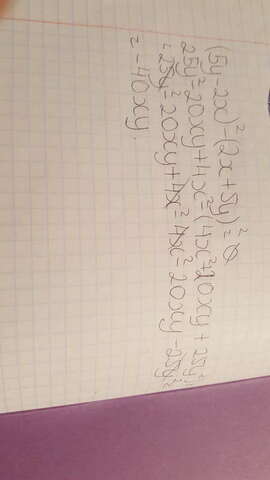 (5y-2x)²-(2x+5y)²=
25y²-20xy+4x²-(4x²+20xy+25y²)
=25y²-20xy+4x²-4x²-20xy-25y²=
=-40xy.